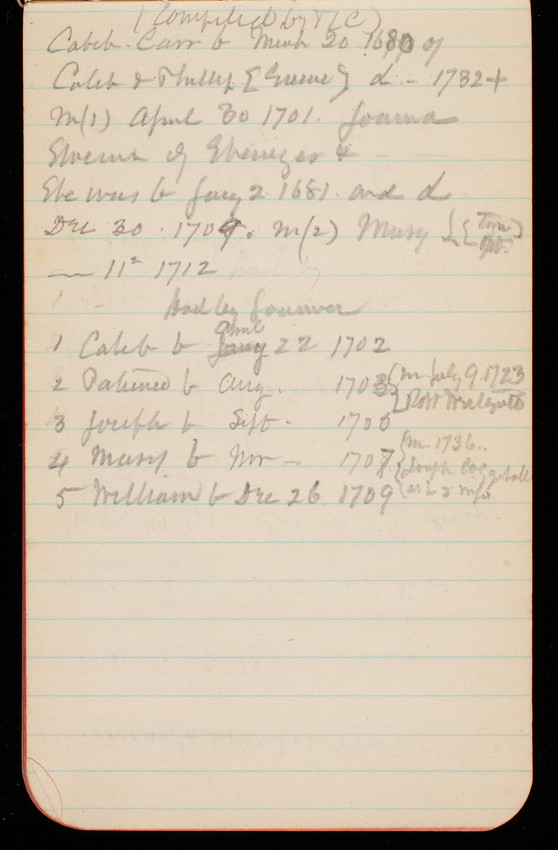 (Compiled by TLC)
Caleb Carr b March 20 1680 of
Caleb & Phillip [Greene] d - 1732 +
M(1) April 30 1701. Joanna
Slocum of Ebenezer &
She was b Jany 2 1681. and d
Dec 30. 1709. M(2) Mary
— 11" 1712
Had by Joanna
1 Caleb b April 22 1702
2 Patience b Aug. 1703 (m July 9. 1723
3 Joseph b Sept. 1705
4 Mary b Nov - 1707 (m. 1736..
5 William b Dec 26 1709